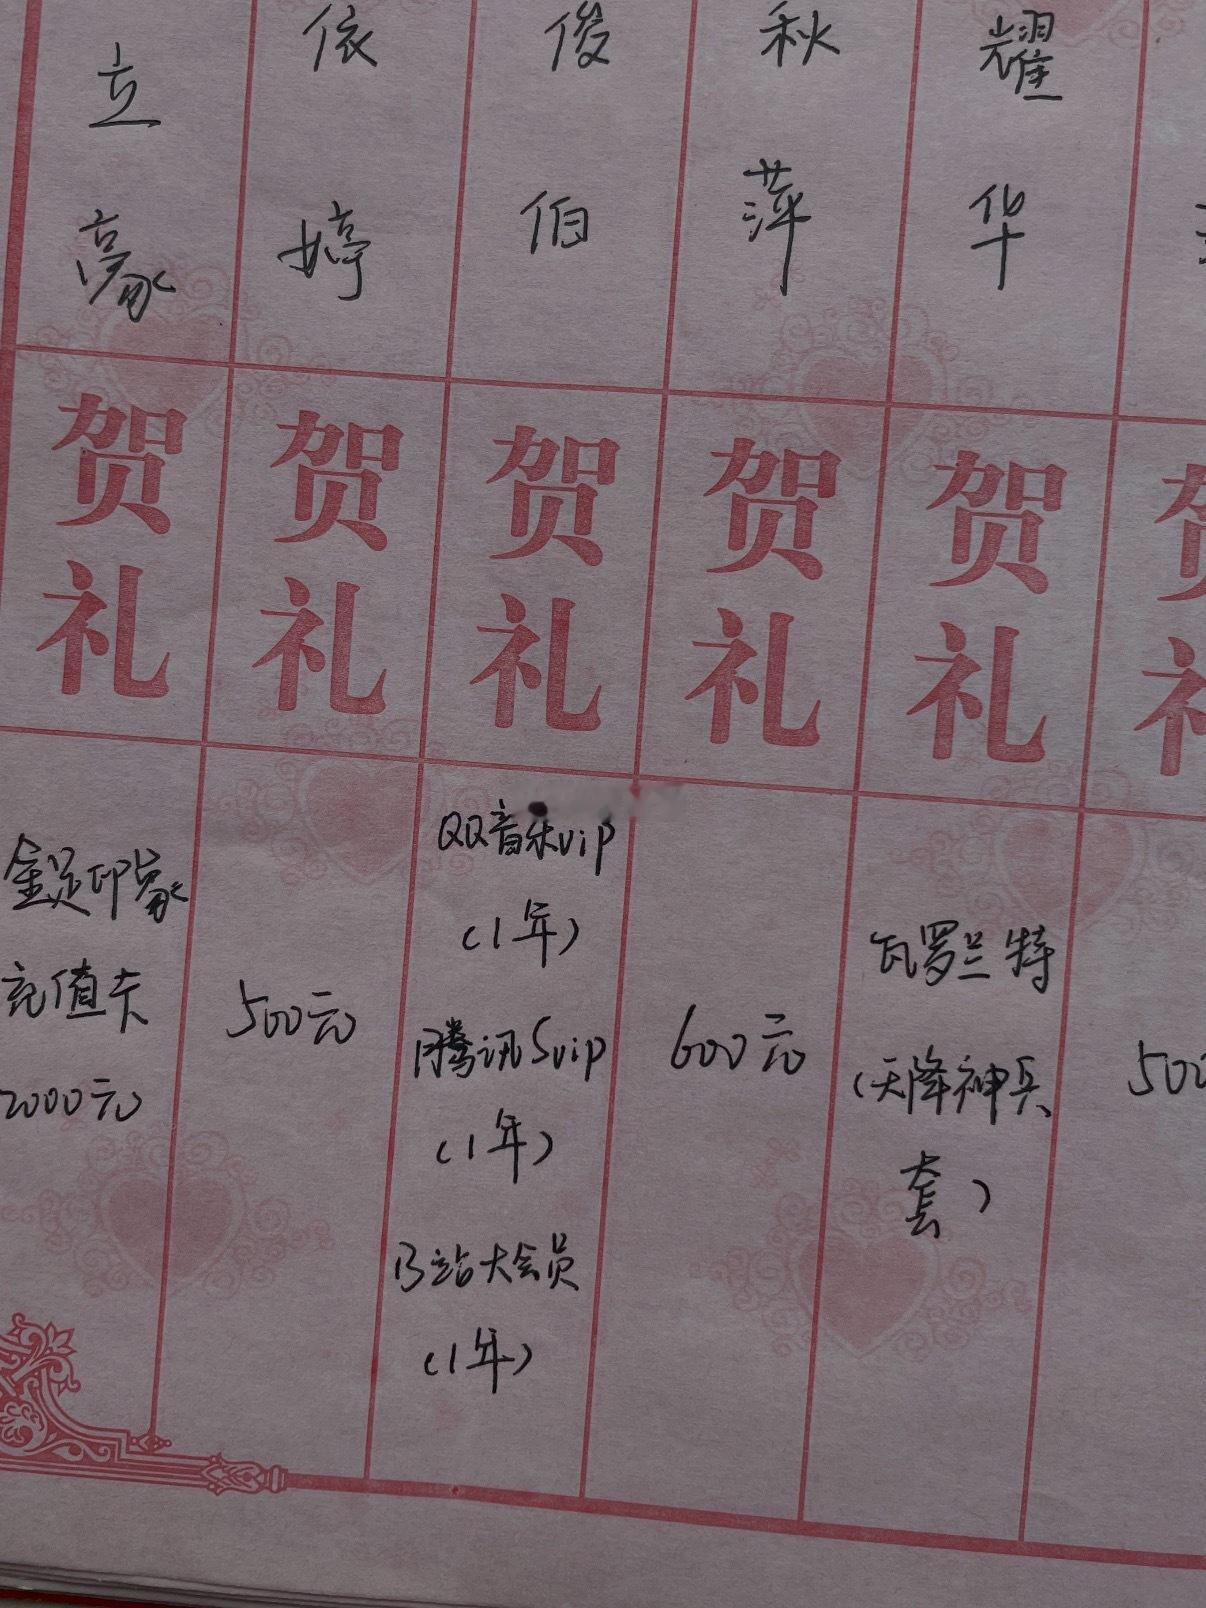 立豪
贺礼
金足印象
充值卡
2000元
依婷
贺礼
500元
俊伯
贺礼
QQ音乐vip
(1年)
腾讯Svip
(1年)
B站大会员
(1年)
秋萍
贺礼
600元
耀华
贺礼
瓦罗兰特
(天降神兵
套)
贺礼
500